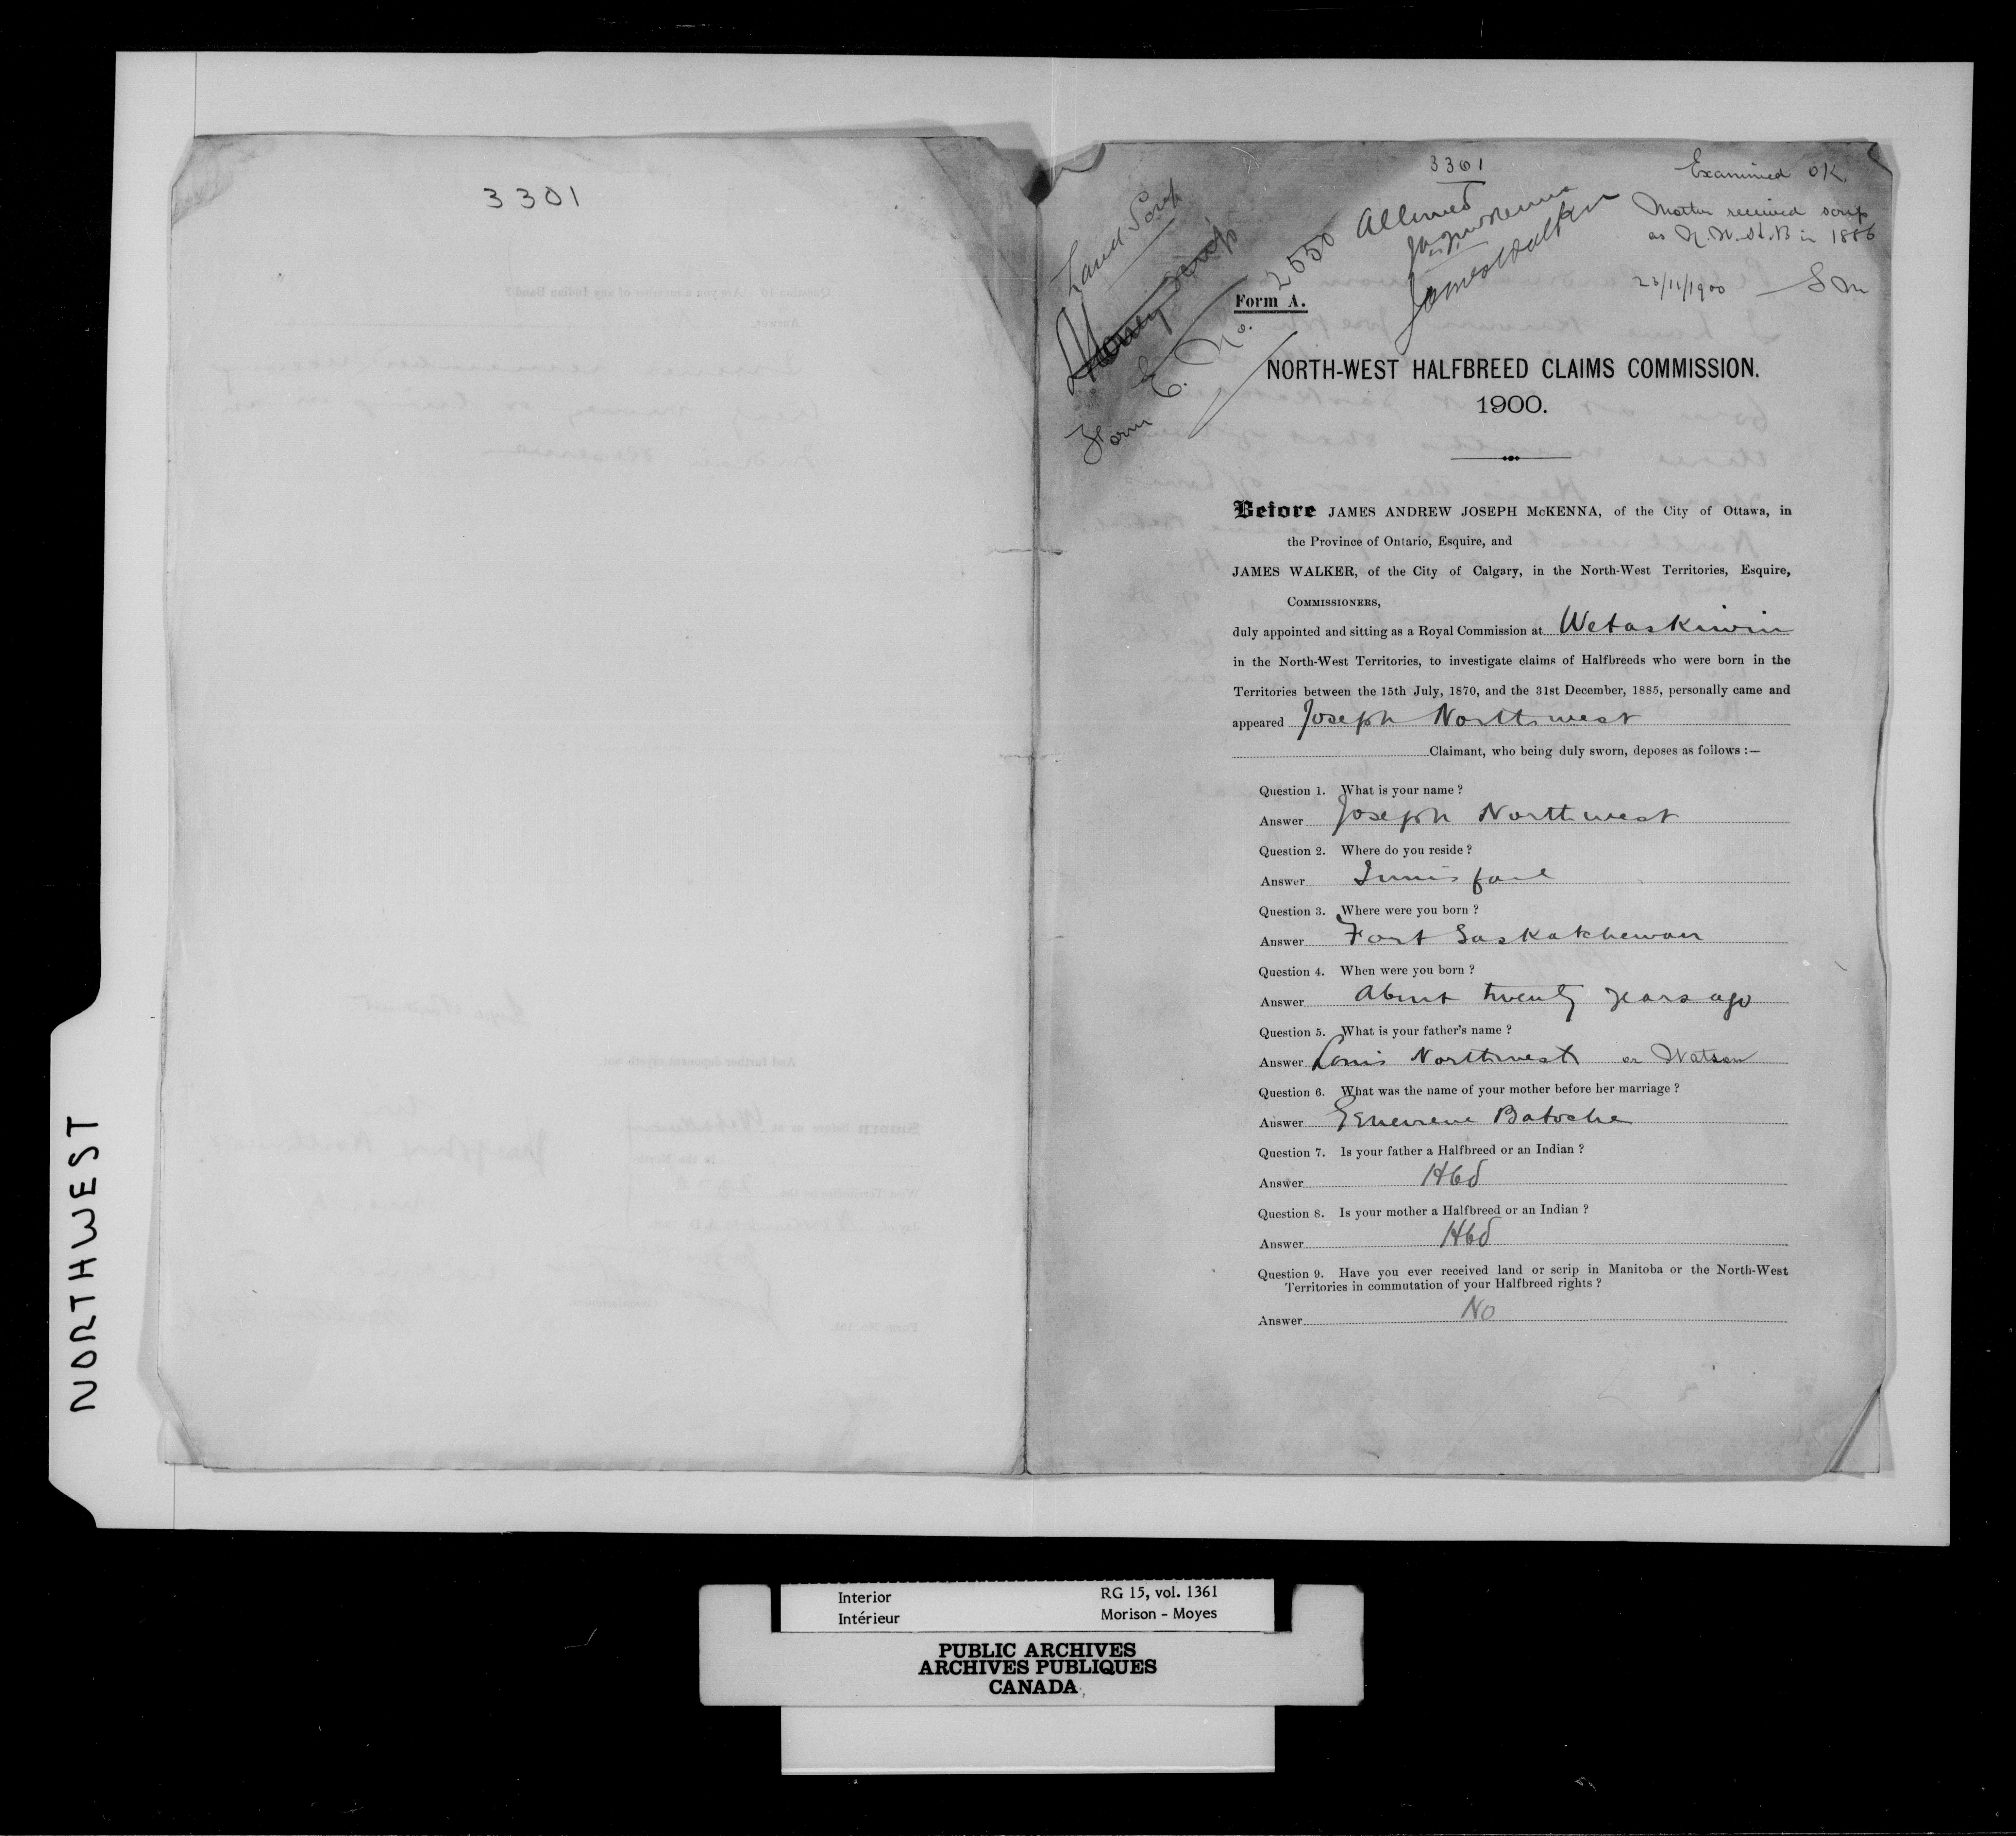 3301
NORTHWEST
3301
Examined OK
Mother received scrip
as N.W.H.B in 1886
23/11/1900 SM
Land Scrip
Money Scrip
Form E. No. 2550
Allowed
JAJ McKenna
James Walker
Form A.
NORTH-WEST HALFBREED CLAIMS COMMISSION.
1900.
Before JAMES ANDREW JOSEPH McKENNA, of the City of Ottawa, in
the Province of Ontario, Esquire, and
JAMES WALKER, of the City of Calgary, in the North-West Territories, Esquire,
COMMISSIONERS,
duly appointed and sitting as a Royal Commission at Wetaskiwin
in the North-West Territories, to investigate claims of Halfbreeds who were born in the
Territories between the 15th July, 1870, and the 31st December, 1885, personally came and
appeared Joseph Northwest
Claimant, who being duly sworn, deposes as follows :—
Question 1. What is your name ?
Answer Joseph Northwest
Question 2. Where do you reside ?
Answer Innisfail
Question 3. Where were you born ?
Answer Fort Saskatchewan
Question 4. When were you born ?
Answer About twenty years ago
Question 5. What is your father's name ?
Answer Louis Northwest or Watson
Question 6. What was the name of your mother before her marriage ?
Answer Genevieve Batoche
Question 7. Is your father a Halfbreed or an Indian ?
Answer Hbd
Question 8. Is your mother a Halfbreed or an Indian ?
Answer Hbd
Question 9. Have you ever received land or scrip in Manitoba or the North-West
Territories in commutation of your Halfbreed rights ?
Answer No
Interior RG 15, vol. 1361
Intérieur Morison - Moyes
PUBLIC ARCHIVES
ARCHIVES PUBLIQUES
CANADA